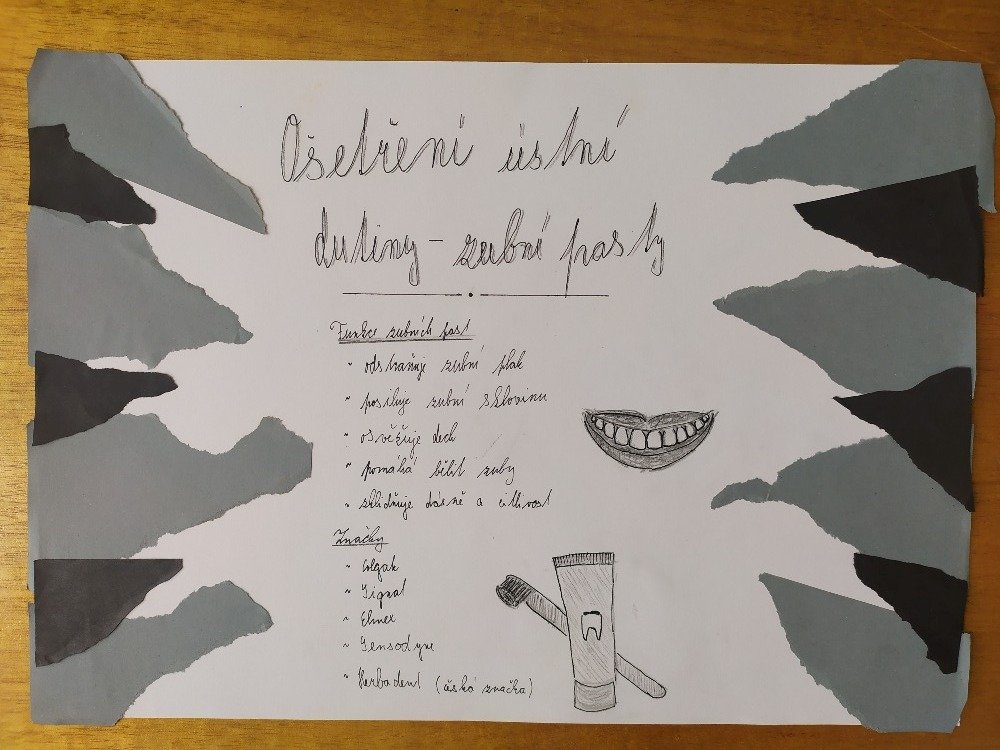 Ošetření ústní
dutiny - zubní pasty
Funkce zubních past
" odstraňuje zubní plak
" posiluje zubní sklovinu
" osvěžuje dech
" pomáhá bělit zuby
" zklidňuje dásně a citlivost
Značky
" Colgate
" Signal
" Elmex
" Sensodyne
" Herbadent (česká značka)